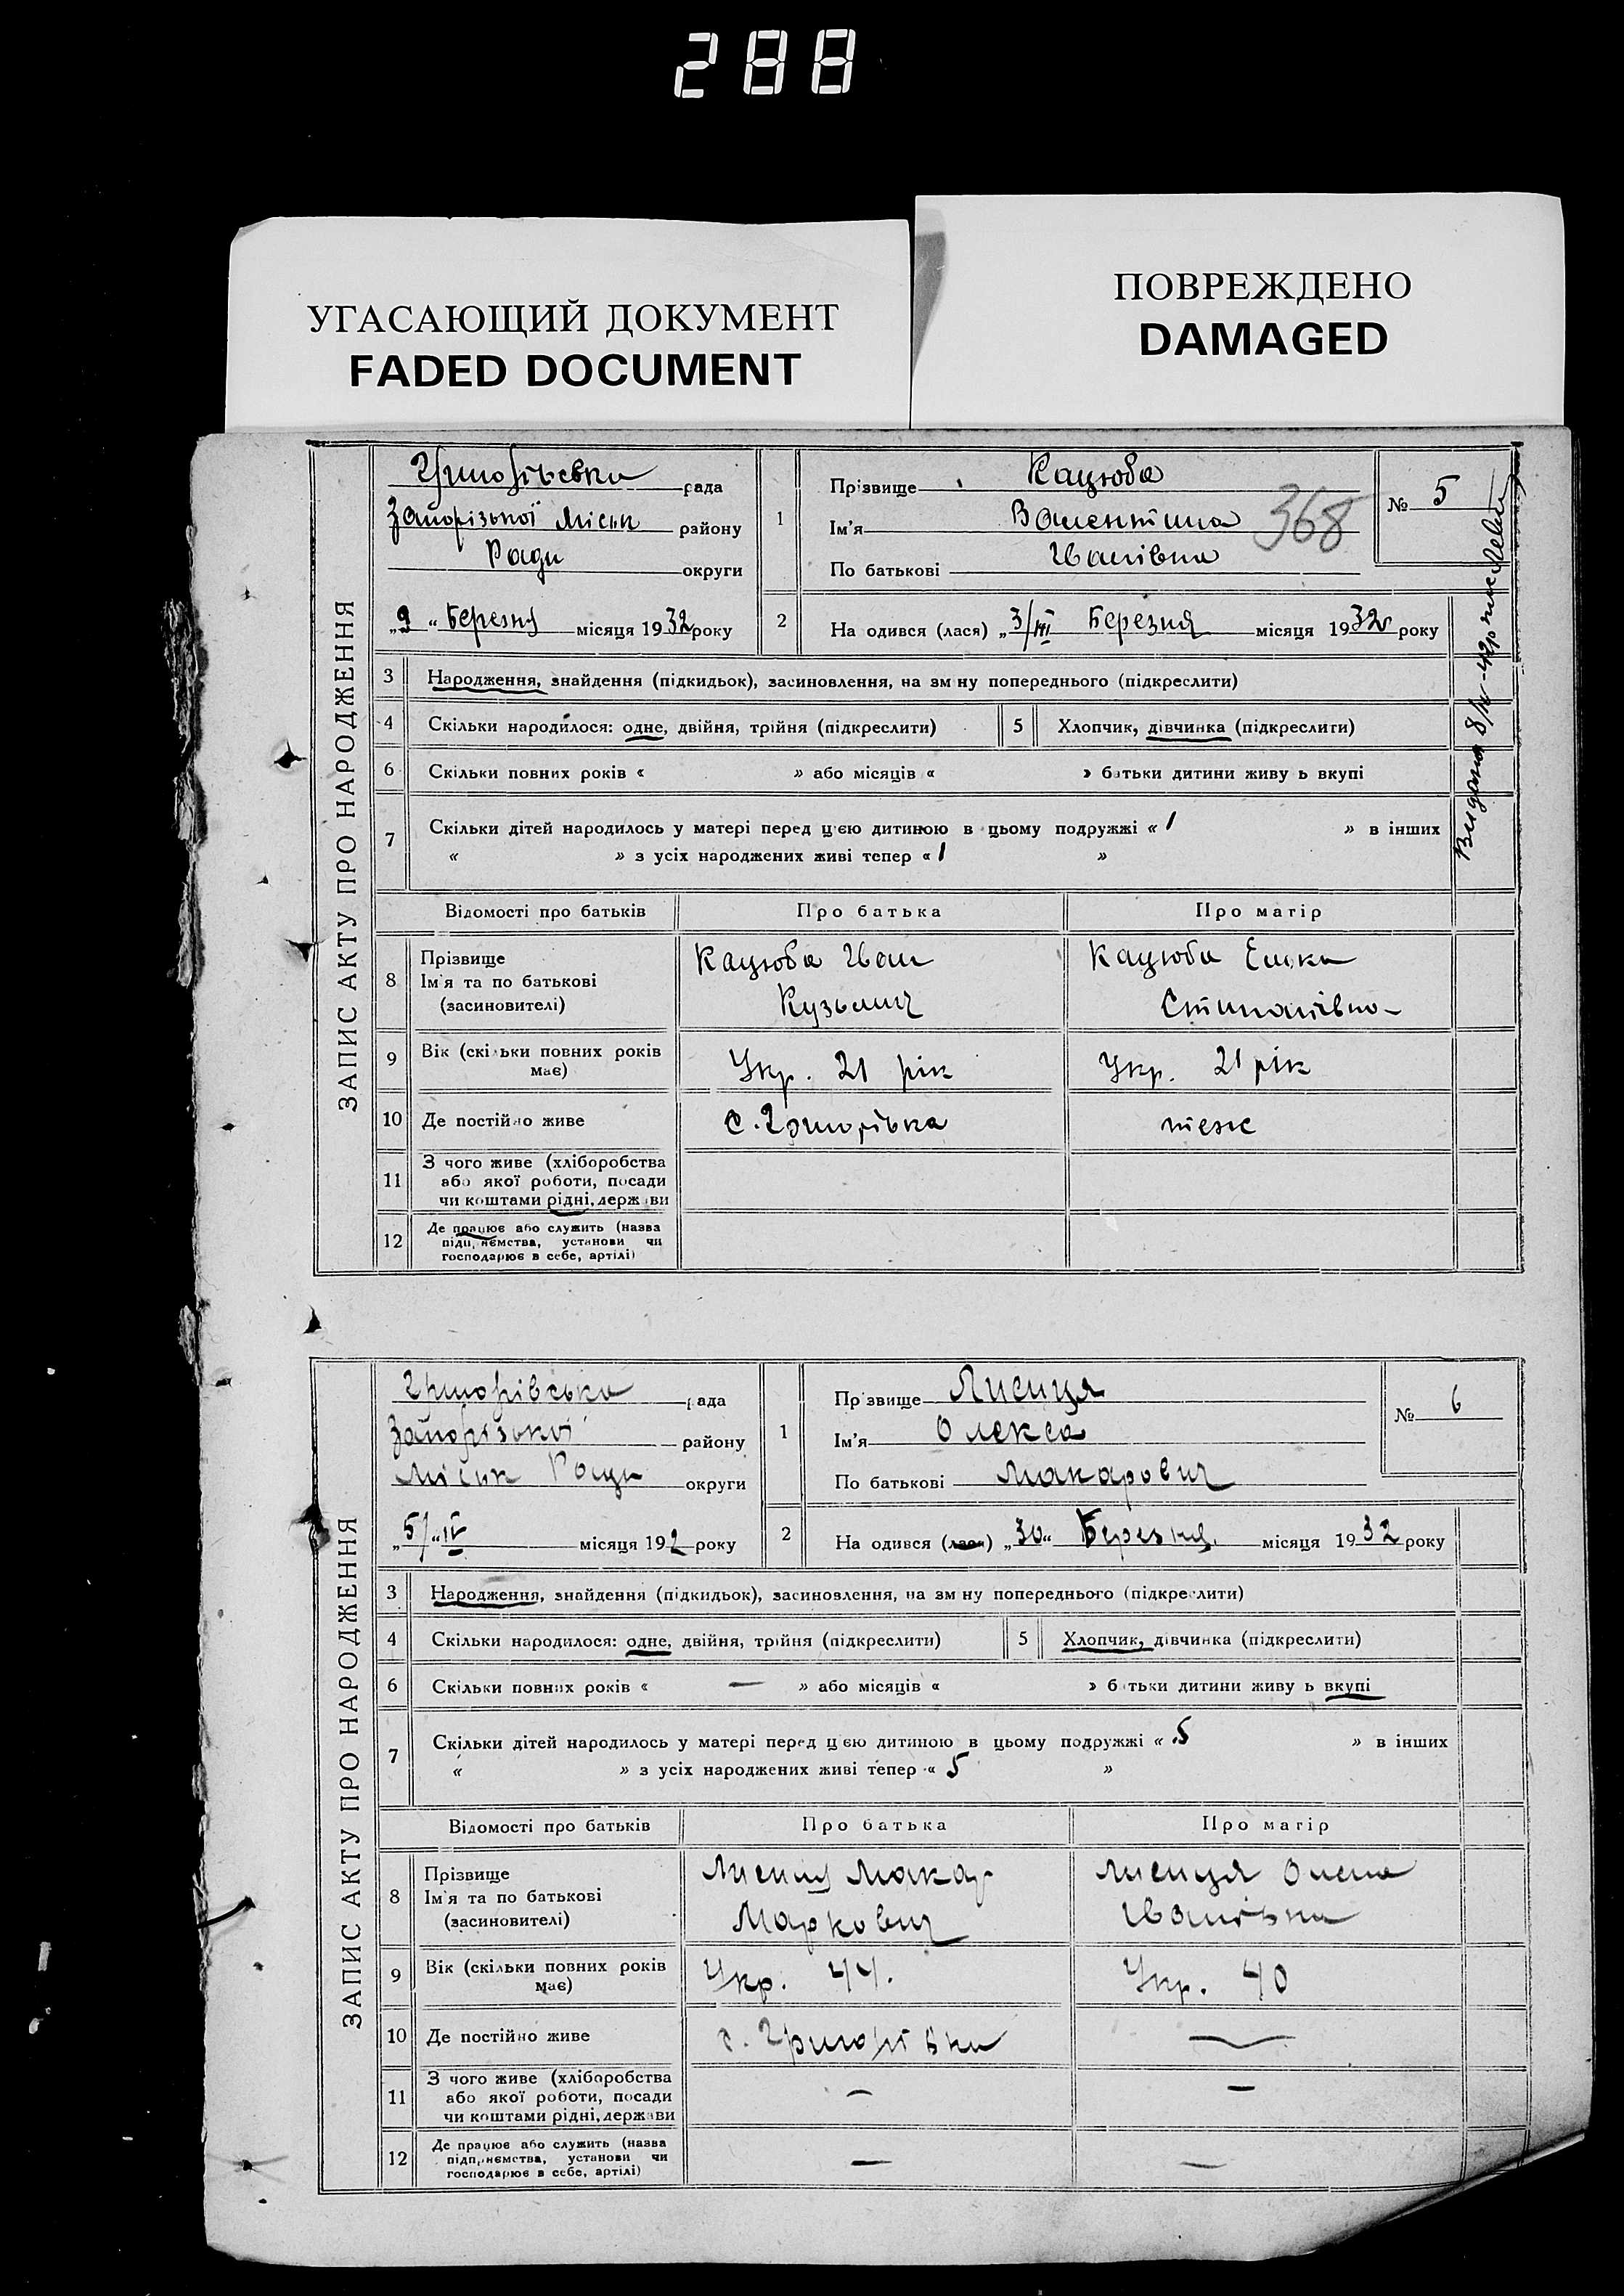 288
УГАСАЮЩИЙ ДОКУМЕНТ
FADED DOCUMENT
ПОВРЕЖДЕНО
DAMAGED
ЗАПИС АКТУ ПРО НАРОДЖЕННЯ
рада
Запорізької міськ району
Ради округи
„9“ березня місяця 1932 року
1 Прізвище Кацюба
Ім'я Валентина
По батькові Іванівна
368
№ 5
2 На одився (лася) „3/III Березня місяця 1932 року
Видана
3 Народження, знайдення (підкидьок), засиновлення, на зм ну попереднього (підкреслити)
4 Скільки народилося: одне, двійня, трійня (підкреслити) 5 Хлопчик, дівчинка (підкреслити)
6 Скільки повних років « » або місяців « » батьки дитини живу ь вкупі
7 Скільки дітей народилось у матері перед цією дитиною в цьому подружжі « 1 » в інших
« » з усіх народжених живі тепер « 1 »
Відомості про батьків Про батька Про матір
8 Прізвище Кацюба Іван Кацюба
Ім'я та по батькові
(засиновителі) Кузьмич
9 Вік (скільки повних років має) Укр. 21 рік Укр. 21 рік
10 Де постійно живе с. теж
11 З чого живе (хліборобства
або якої роботи, посади
чи коштами рідні, держави
12 Де працює або служить (назва
підприємства, установи чи
господарює в себе, артілі)
ЗАПИС АКТУ ПРО НАРОДЖЕННЯ
Григорівська рада
Запорізької району
Міськ Ради округи
„5/“IV місяця 192 року
1 Пр звище Лисиця
Ім'я Олекса
По батькові Макарович
№ 6
2 На одився (лася) „30“ Березня місяця 1932 року
3 Народження, знайдення (підкидьок), засиновлення, на зм ну попереднього (підкреслити)
4 Скільки народилося: одне, двійня, трійня (підкреслити) 5 Хлопчик, дівчинка (підкреслити)
6 Скільки повних років « — » або місяців « » батьки дитини живу ь вкупі
7 Скільки дітей народилось у матері перед цією дитиною в цьому подружжі « 5 » в інших
« » з усіх народжених живі тепер « 5 »
Відомості про батьків Про батька Про матір
8 Прізвище Лисиця Макар Лисиця Олена
Ім'я та по батькові
(засиновителі) Маркович Іванівна
9 Вік (скільки повних років має) Укр. 44. Укр. 40
10 Де постійно живе с. Григорівка —
11 З чого живе (хліборобства — —
або якої роботи, посади
чи коштами рідні, держави
12 Де працює або служить (назва — —
підприємства, установи чи
господарює в себе, артілі)